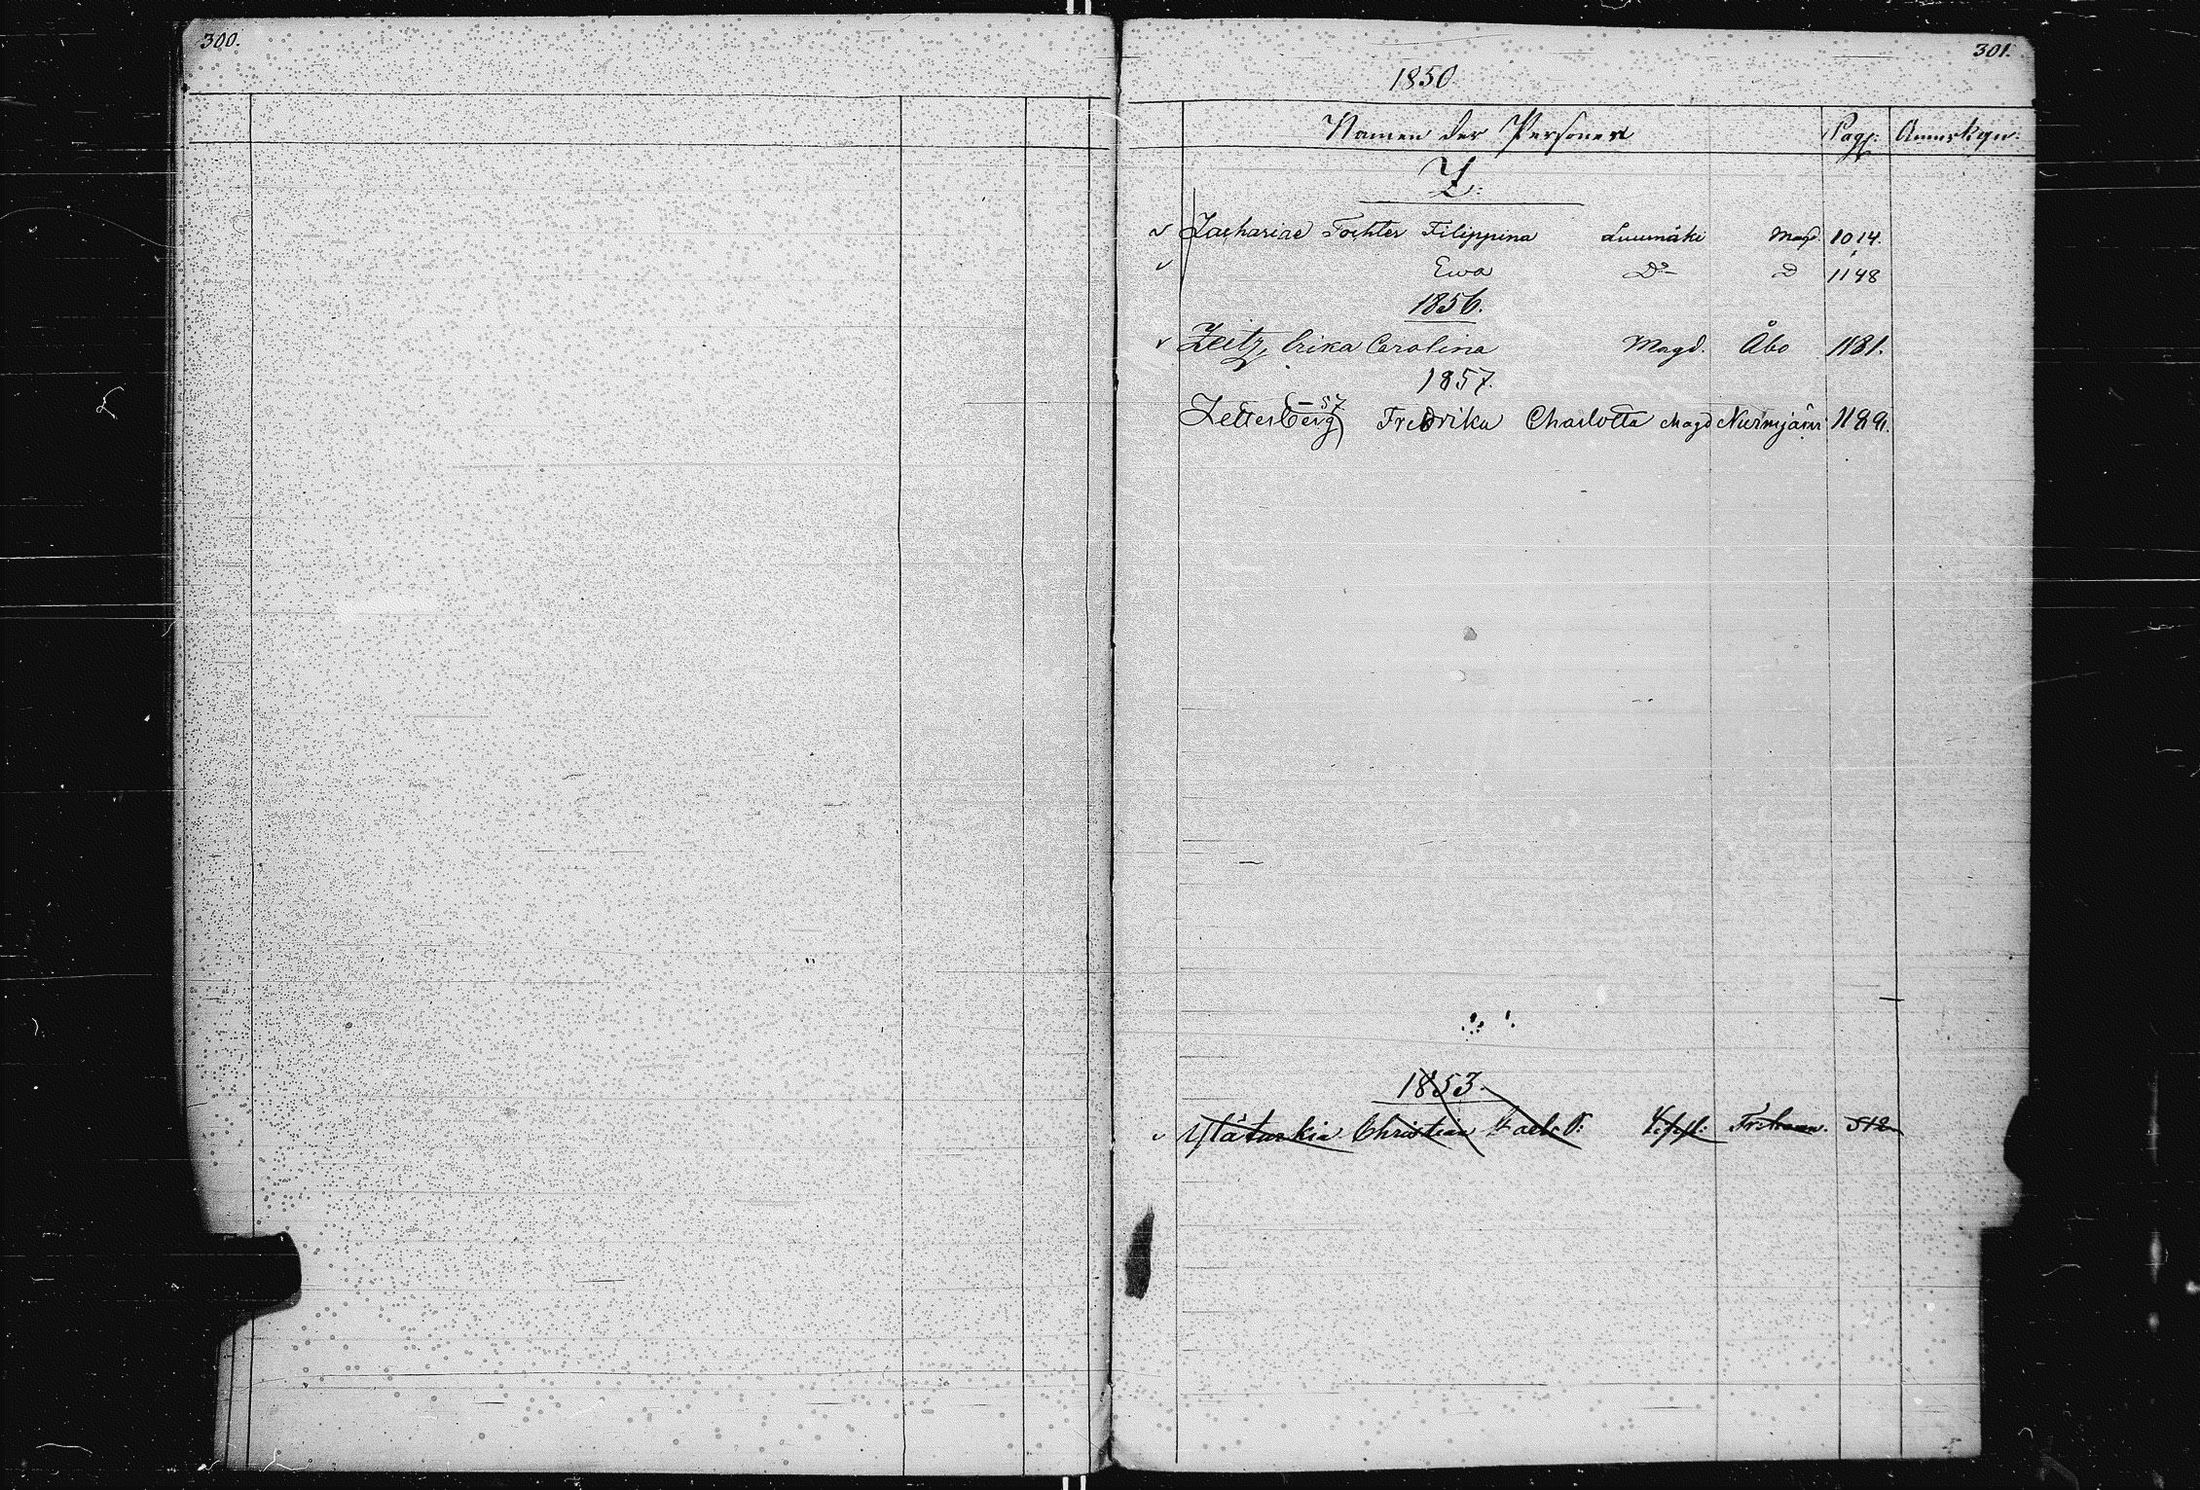 300.
301.
1850
Namen der Personen Pagg: Anmerkgn:
Z:
Zachariae Tochter Filippina Luumäki Magd. 1014.
Ewa Do D 1148
1856.
Zeitz, Erika Carolina Magd. Åbo 1181.
1857.
– 57.
Zetterberg Fredrika Charlotta Magd Nurmijärvi 1189.
1853.
Christian 512